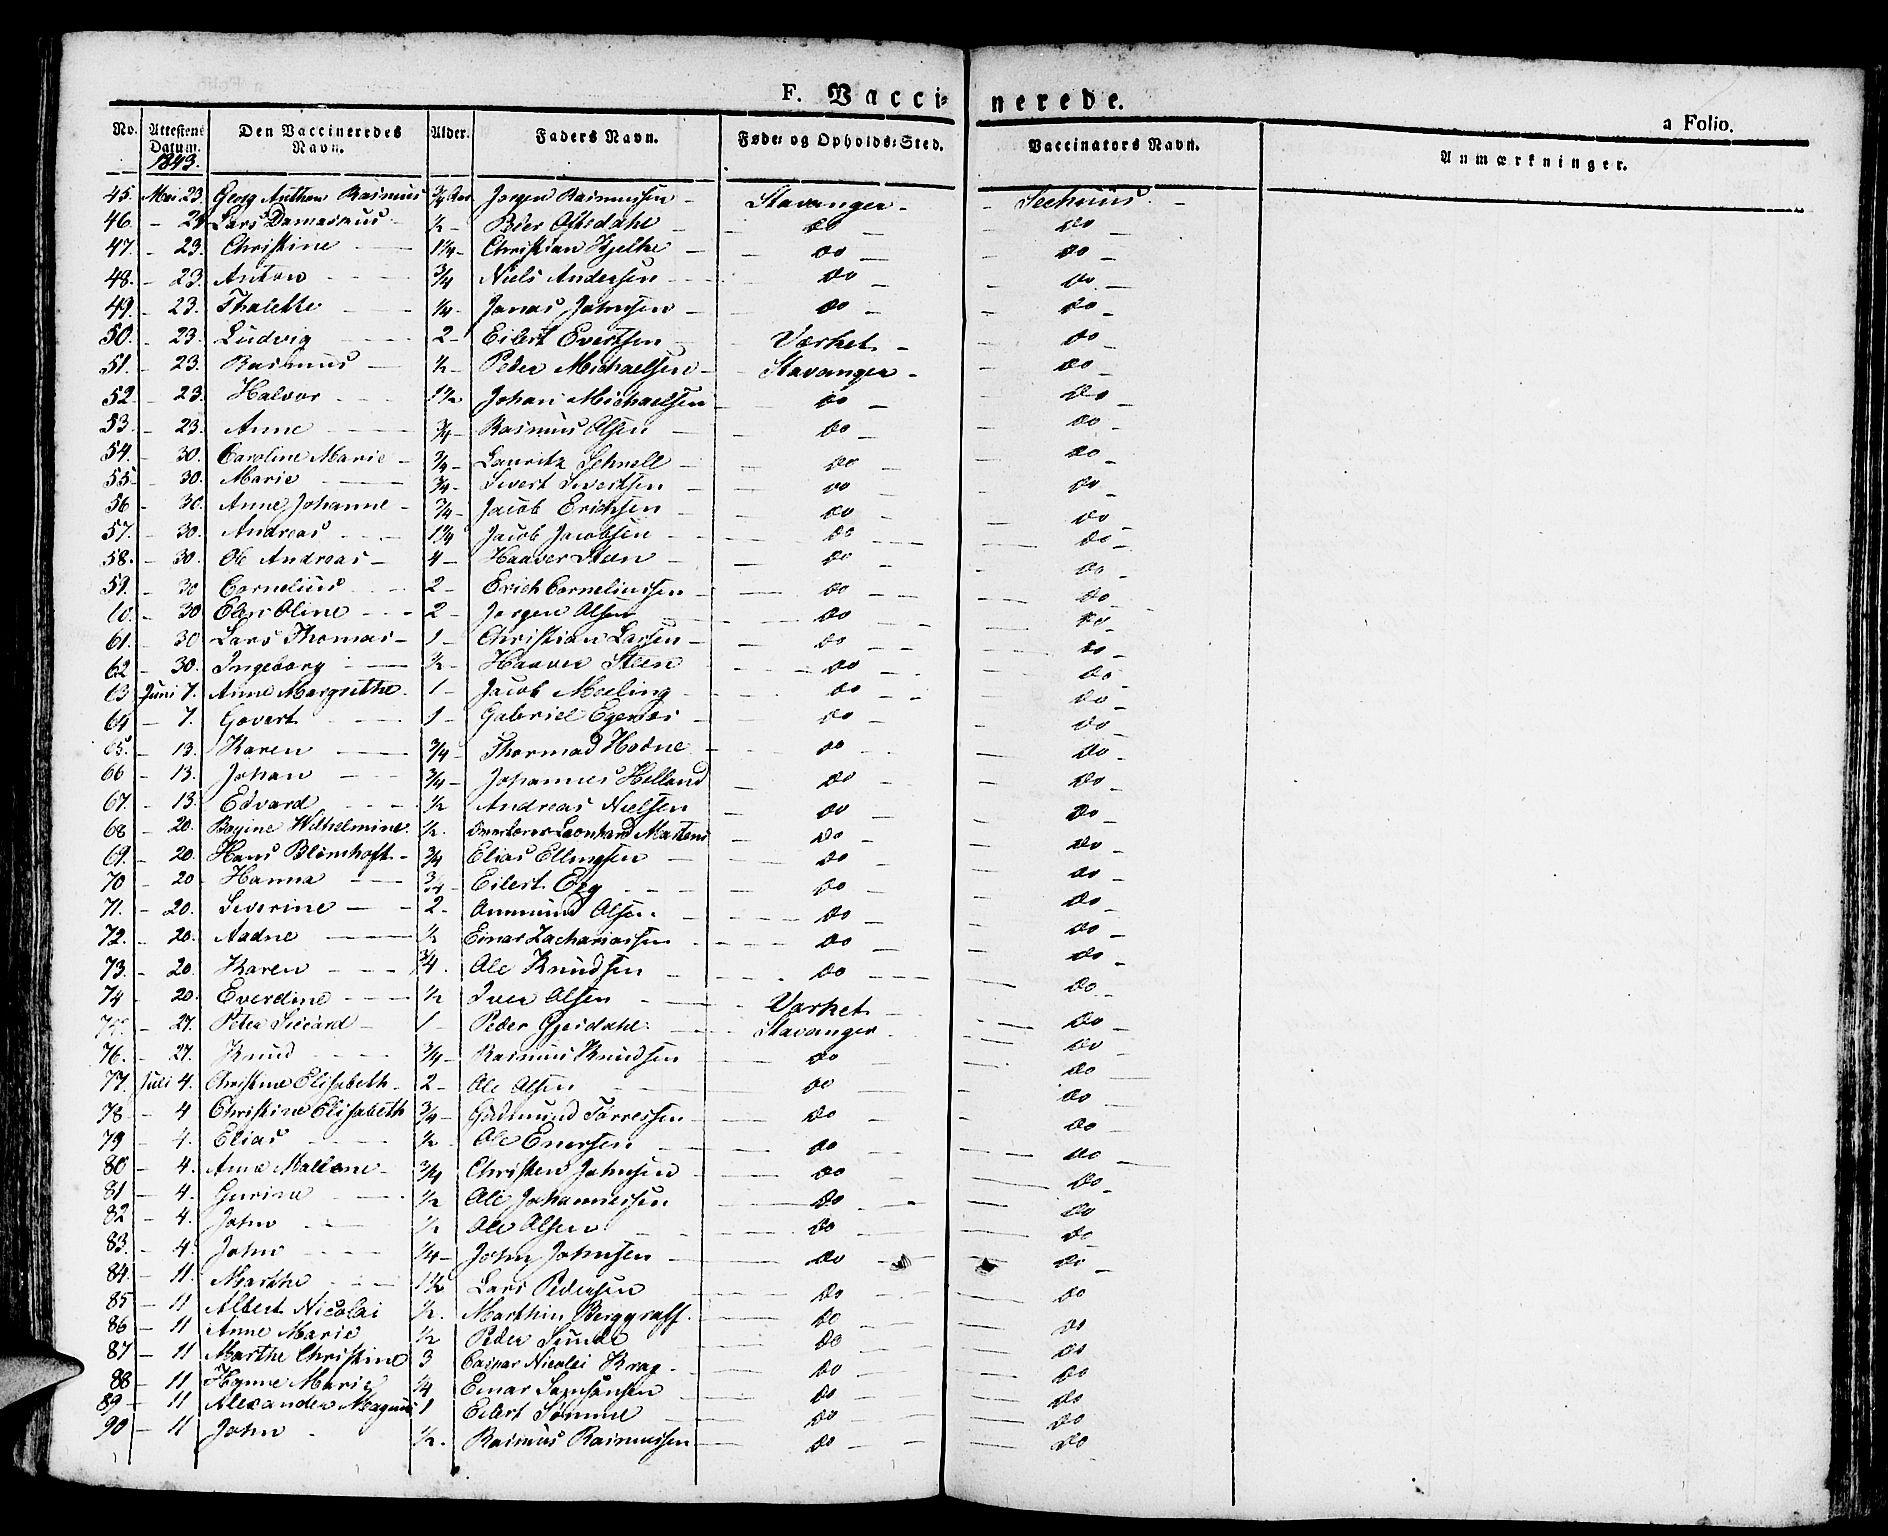 F. Vaccinerede.
a Folio.
No. Attestens Datum. Den Vaccineredes Navn. Alder. Faders Navn. Føde- og Opholds-Sted. Vaccinators Navn. Anmærkninger.
1843.
45. Mai 23. Georg Anthon Rasmus 3/4 Aar Jørgen Rasmussen - Stavanger -
46. - 23 Lars 1/2 - Peder do - do
47. - 23. Christine 1 1/4 - Christian Kjelke - do - do -
48. - 23. Anton 3/4 Niels Andersen - do - do -
49. - 23. Thalette 1/4 - Jonas Johnsen - do - do -
50. - 23. Ludvig 2 - Eilert Evertsen - Værket - do -
51. - 23. Rasmus 1/2 - Peder Michaelsen - Stavanger - do -
52 - 23. Halvor 1 1/2 Johan Michaelsen do - do -
53. - 23. Anne 3/4 - Rasmus Olsen - do - do -
54. - 30. Caroline Marie - 3/4 - Lauritz Schnell - do - do -
55 - 30. Marie 3/4 - Sivert Sivertsen - do - do -
56 - 30. Anne Johanne - 3/4 - Jacob Erichsen do - do -
57. - 30. Andreas 1 1/4 Jacob Jacobsen do - do -
58. - 30. Ole Andreas - 4 - Haaver Steen do - do -
59. - 30 Cornelius 2 - Erich Corneliussen - do - do -
60. - 30 Oline - 2 - Jørgen Olsen do - do -
61. - 30 Lars Thomas - 1 - Christian Larsen - do - do -
62 - 30. Ingeborg - 1/2 - Haaver Steen do - do -
63 Juni 7. Anne Margrethe. 1 - Jacob Meeling - do - do -
64 - 7. Govert 1 - Gabriel Egenæs - do - do
65. - 13. Karen 3/4 Thormod Hodne - do - do -
66 - 13. Johan 3/4 - Johannes Helland do - do -
67. - 13. Edvard 1/2 Andreas Nielsen do - do -
68 - 20. Wilhelmine. 1/2. Leonhard do - do -
69. - 20. Hans Blomhoft - 3/4 Elias Ellingsen - do - do -
70 - 20. Hanna 3/4 - Eilert do - do -
71. - 20. Severine - 2 - Ommund Olsen - do - do -
72. - 20. Aadne 1/2 Einar Zachariassen do - do -
73. - 20. Karen 3/4. Ole Knudsen - do - do -
74 - 20. Everdine 1/2 Iver Olsen Værket do -
- 27. Peter 1 - Peder Gjesdahl. Stavanger do -
76. - 27. Knud 3/4 - Rasmus Knudsen do - do -
77. Juli 4. Christine Elisabeth - 2 - Ole Olsen do do
78 - 4 Christine Elisabeth 3/4 - Gudmund Tørressen - do - do
79 - 4. Elias 1/2 - Ole Enersen do do
80 - 4. Anne Mallene - 3/4 Christen Johnsen do - do
81 - 4. Gurine 1/2 Ole Johannessen do - do -
82 - 4. John 1/2 Ole Olsen do - do
83. - 4. John 1/4 - John Johnsen - do - do -
84. - 11. Marthe 1 1/2 Lars Pedersen do - do -
85 - 11 Albert Nicolai 1/2. Marthin Berggraff. do - do
86 - 11 Anne Marie 1/2 Peder Sunde do - do
87 - 11 Marthe Christine 3 Casper Nicolai Krag - do - do
88 - 11 Marie 1/4 Einar do - do
89 - 11 Alexander Magnus 1 Eilert Sømme do - do
90 - 11 John 1/2. Rasmus Rasmussen do - do